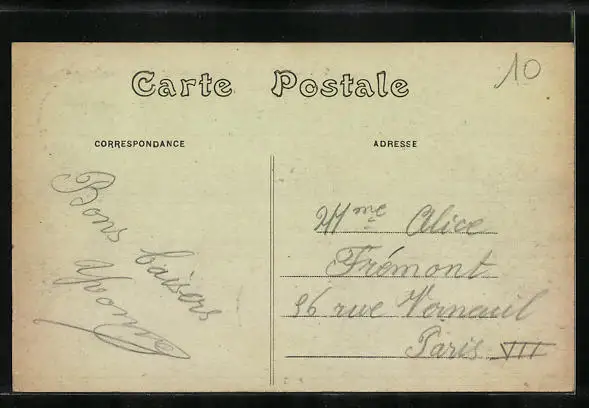 Carte Postale
10
CORRESPONDANCE
ADRESSE
Bons baisers
Yvonne
Mme Alice
Frémont
56 rue Verneuil
Paris VII